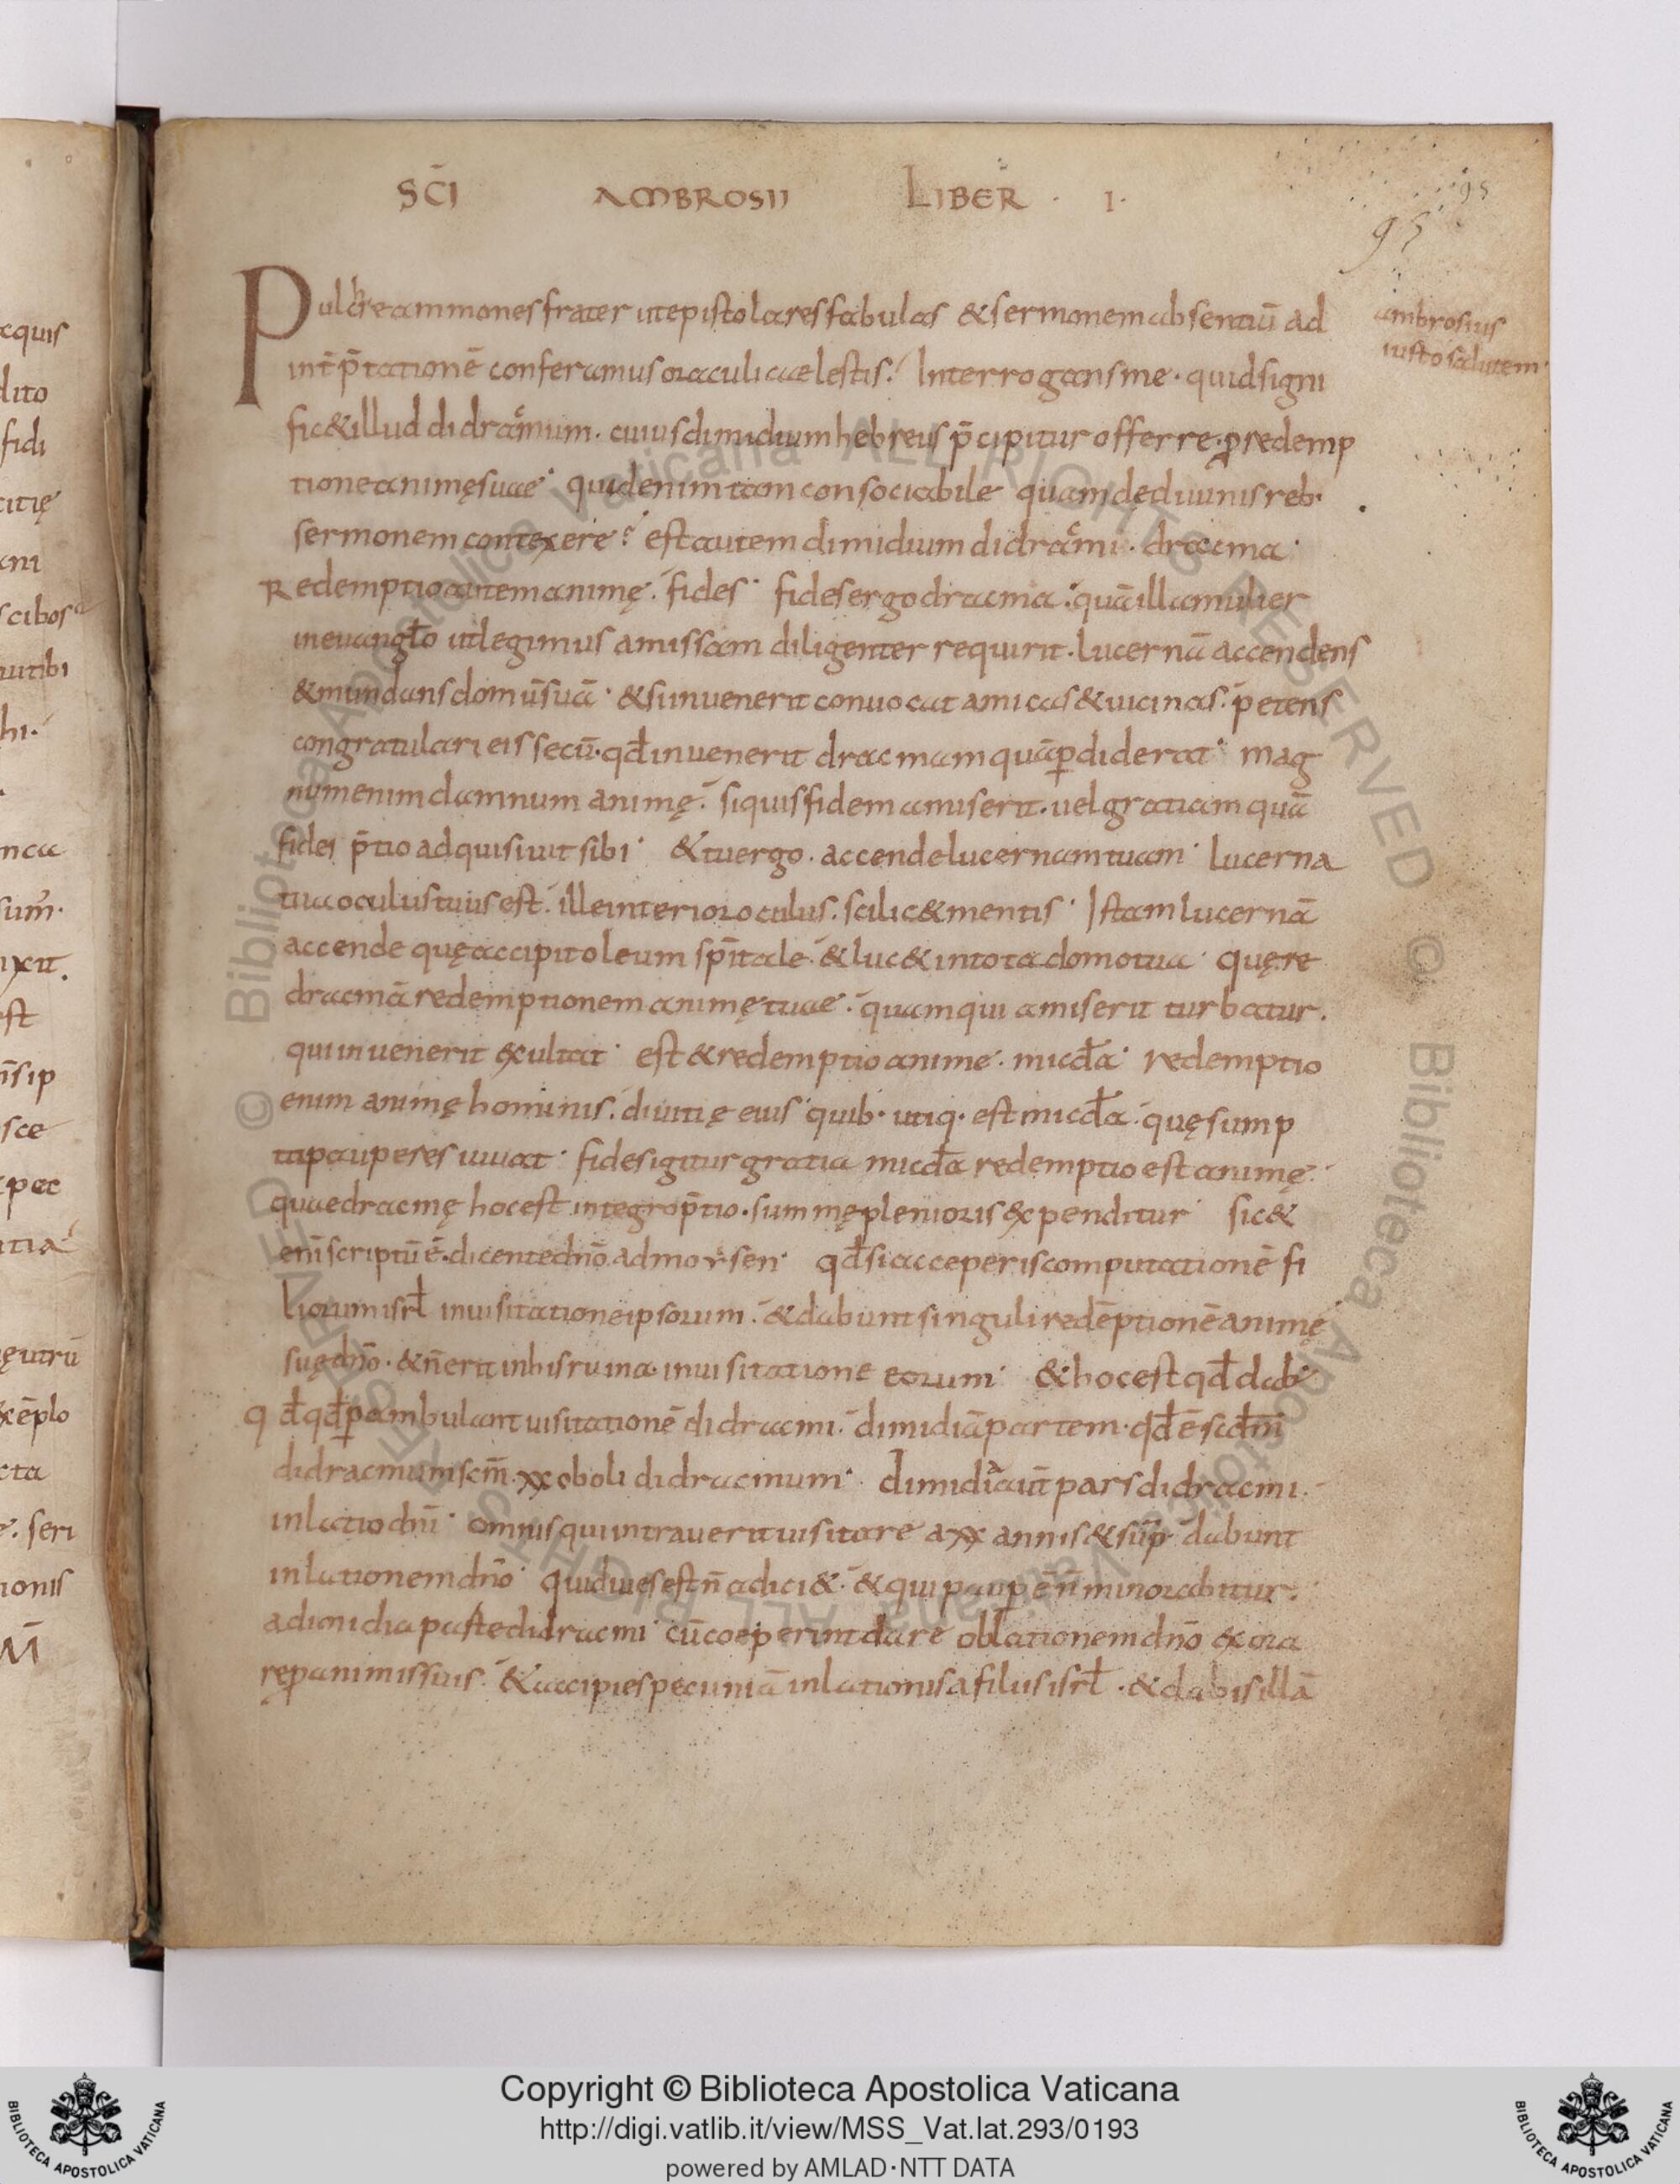 SC̄I AMBROSII LIBER · I·
95
95
Pulchre ammones frater ut epistolares fabulas & sermonem absentiū ad
int̄p̄tationē conferamus oraculi caelestis. Interrogans me · quid signi
fic& illud didracmum · cuius dimidium hebreus p̄cipitur offerre · ꝓ redemp
tione animę suae · quid enim tam consociabile quam de diuinis reb·
sermonem contexere? est autem dimidium didracmi · dracma ·
Redemptio autem animę · fides · fides ergo dracma · quā illa mulier
in euanglo ut legimus amissam diligenter requirit · lucernā accendens
& mundans domū suā · & si inuenerit conuocat amicas & uicinas · petens
congratulari eis secū · qđ inuenerit dracmam quā ꝑdiderat · mag
num enim damnum animę · si quis fidem amiserit · uel gratiam quā
fides p̄tio adquisiuit sibi · & tu ergo · accende lucernam tuam · lucerna
tua oculus tuus est · ille interior oculus · scilic& mentis · Istam lucernā
accende quę accipit oleum sp̄itale · & luc& in tota domo tua · quęre
dracmā redemptionem animę tuae · quam qui amiserit turbatur ·
qui inuenerit exultat · est & redemptio anime · micđa · redemptio
enim animę hominis · diuitię eius quib· utiq· est micđa · quę sump
tu pauperes iuuat · fides igitur gratia micđa redemptio est animę ·
quae dracmę hoc est integro p̄tio · summę plenioris expenditur · sic &
enī scriptū ē · dicente dn̄o ad moysen · qđ si acceperis computationē fi
liorum isrł in uisitatione ipsorum · & dabunt singuli redēptionē animę
suę dn̄o · & n̄ erit in his ruina · in uisitatione eorum · & hoc est qđ dab
qđ qđ ꝑambulant uisitationē didracmi · dimidiā partem · qđ ē scđm
didracmum scm̄ · xx oboli didracmum · dimidia aut̄ pars didracmi ·
inlatio dn̄i · omnis qui intrauerit uisitare a xx annis & sup̄ · dabunt
inlationem dn̄o · qui diues est n̄ adici& · & qui pauꝑ ē n̄ minorabitur ·
a dimidia parte didracmi · cū coeperint dare oblationem dn̄o exora
re ꝓ animis suis · & accipies pecuniā inlationis a filiis isrł · & dabis illā
ambrosius
iusto salutem·
Copyright © Biblioteca Apostolica Vaticana
http://digi.vatlib.it/view/MSS_Vat.lat.293/0193
powered by AMLAD·NTT DATA
BIBLIOTECA APOSTOLICA VATICANA
BIBLIOTECA APOSTOLICA VATICANA